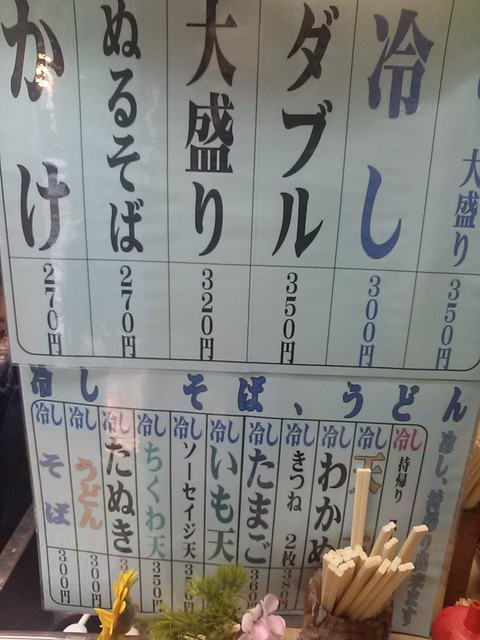 かけ 270円
ぬるそば 270円
大盛り 320円
ダブル 350円
冷し 300円
大盛り 350円
冷し そば、うどん
冷し そば 300円
冷し うどん 300円
冷し たぬき
冷し ちくわ天 350円
冷し ソーセイジ天
冷し いも天
冷し たまご
冷し きつね 2枚 380円
冷し わかめ
冷し 天
冷し 持帰り
冷し、持帰り出来ます